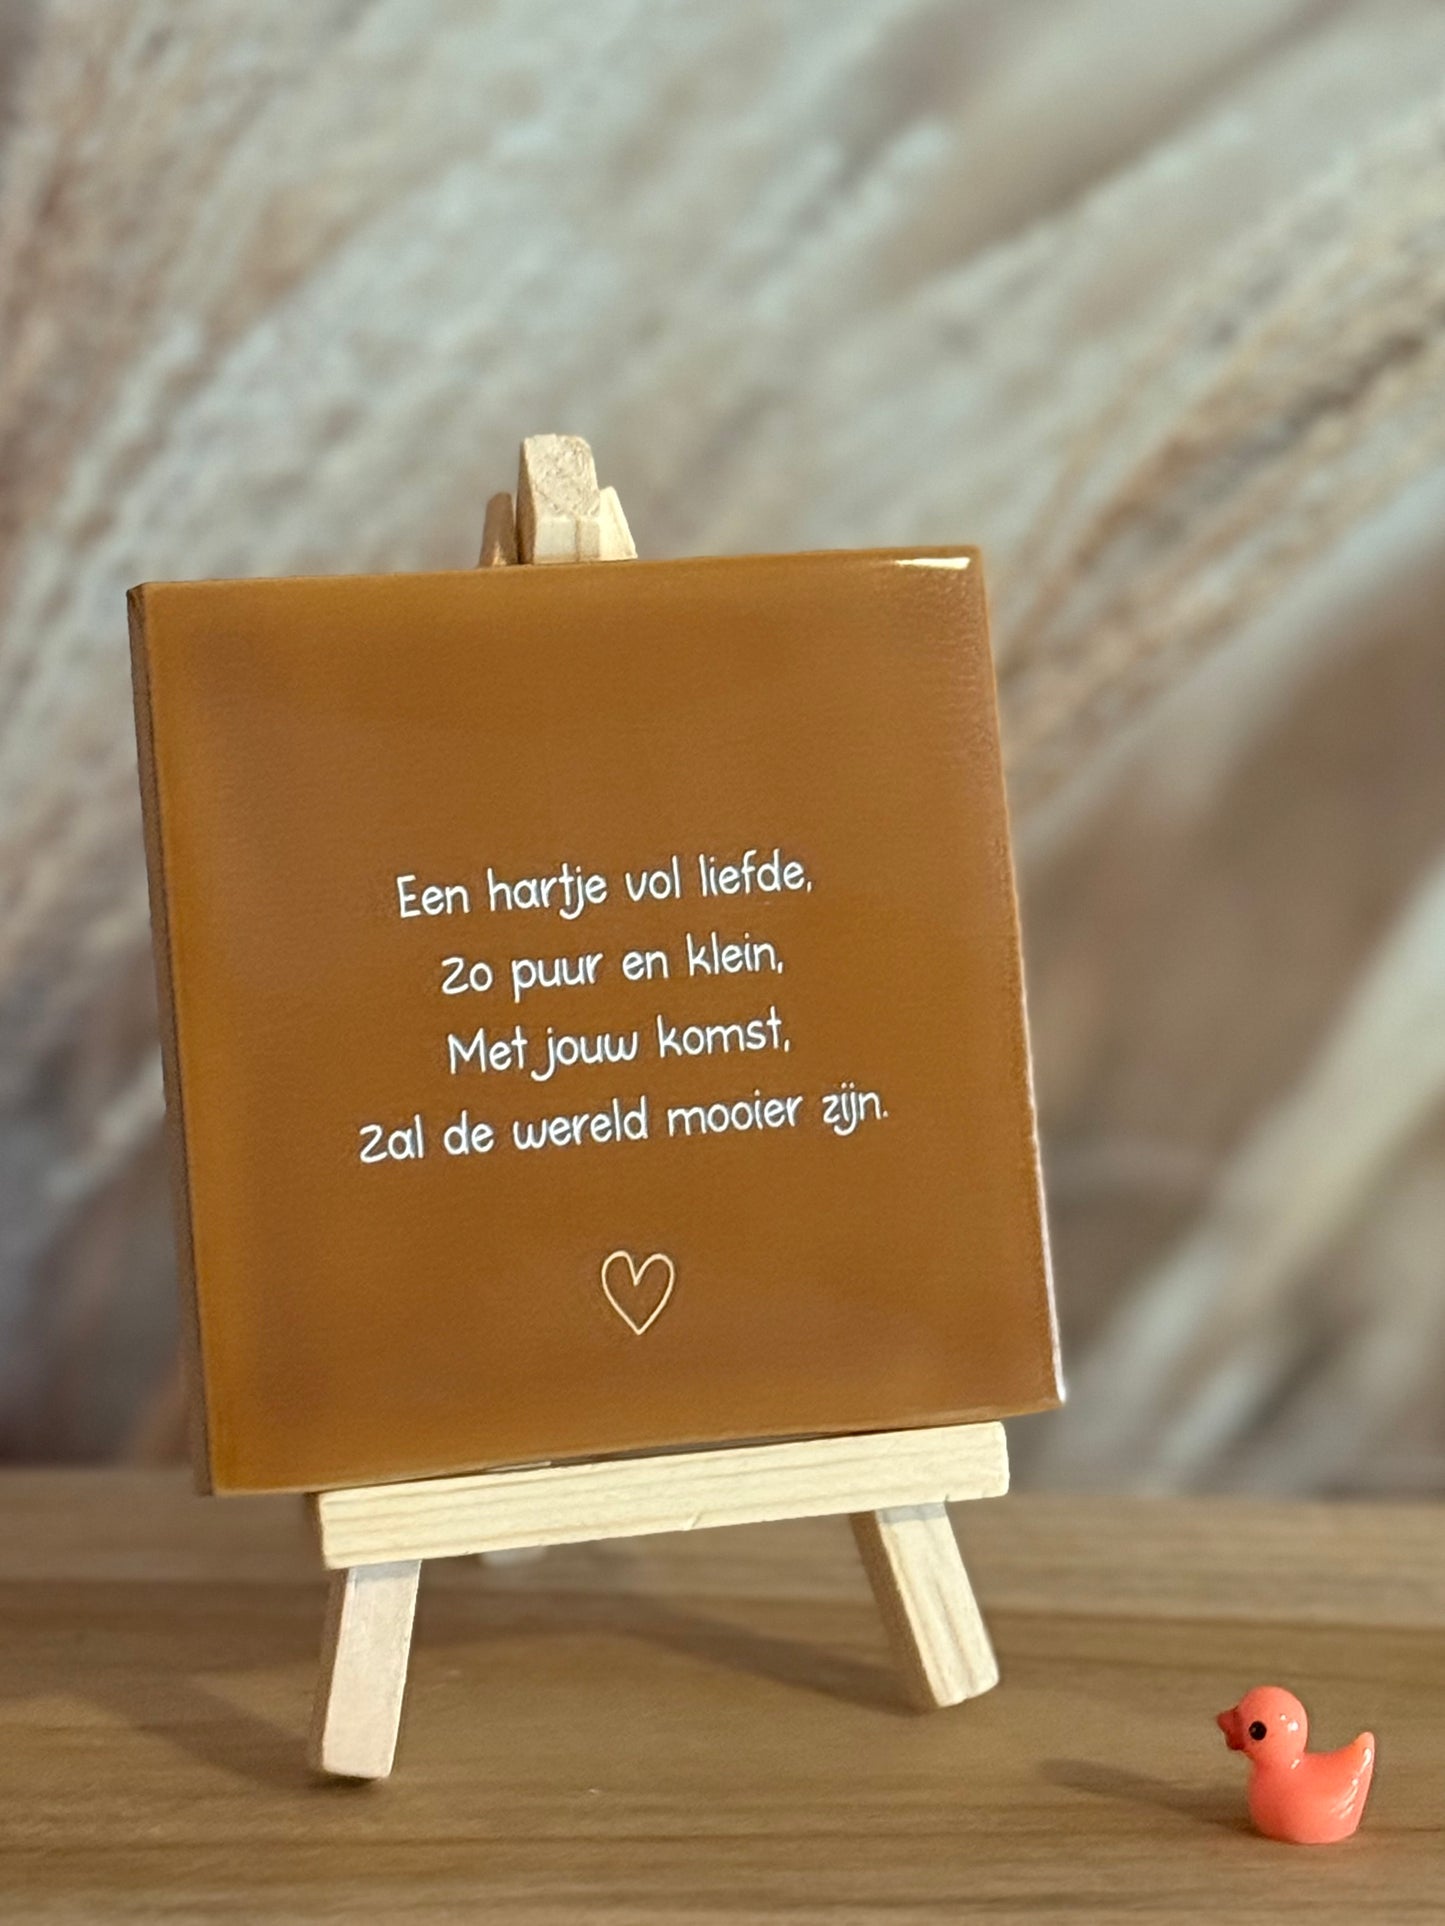 Een hartje vol liefde,
Zo puur en klein,
Met jouw komst,
Zal de wereld mooier zijn.